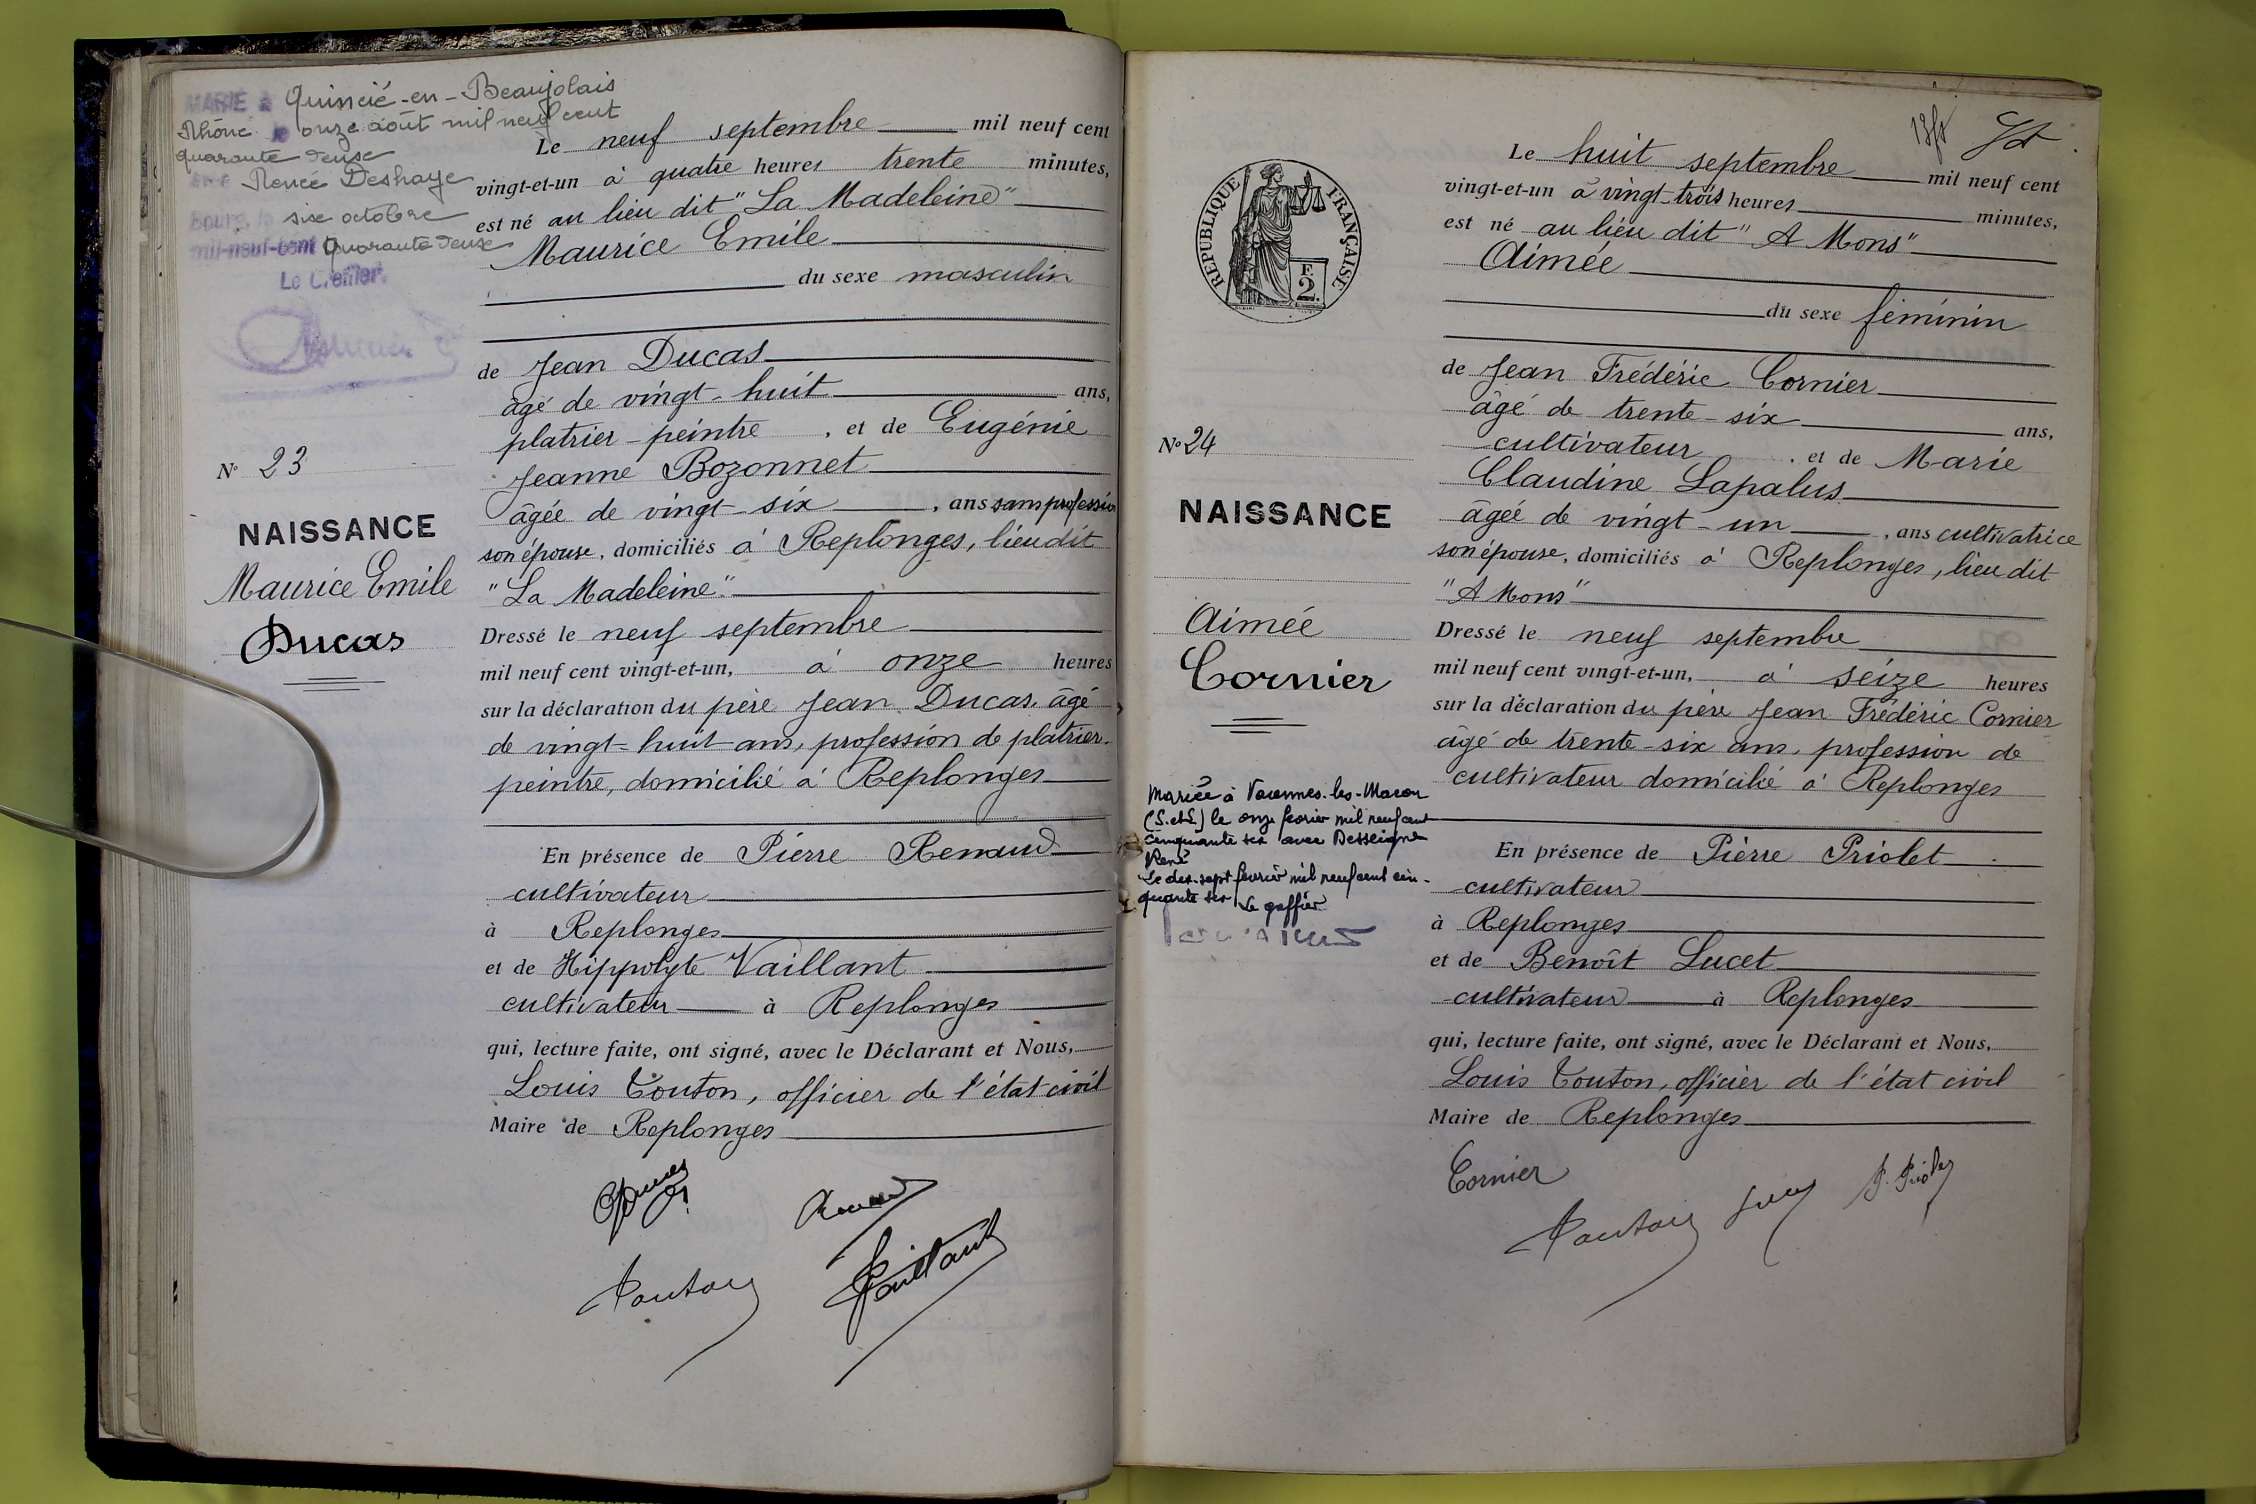 MARIÉ à Quincié-en-Beaujolais
Rhône le onze août mil neuf cent
quarante deux
Renée Deshaye
Bourg, le six octobre
mil-neuf-cent quarante deux
Le Greffier,
N° 23
NAISSANCE
Maurice Emile
Ducas
Le neuf septembre mil neuf cent
vingt-et-un à quatre heures trente minutes,
est né au lieu dit "La Madeleine"
Maurice Emile
du sexe masculin
de Jean Ducas
âgé de vingt-huit ans,
platrier-peintre, et de Eugénie
Jeanne Bozonnet
âgée de vingt-six, ans sans profession
son épouse, domiciliés à Replonges, lieu dit
"La Madeleine"
Dressé le neuf septembre
mil neuf cent vingt-et-un, à onze heures
sur la déclaration du père Jean Ducas, âgé
de vingt-huit ans, profession de platrier-
peintre, domicilié à Replonges
En présence de Pierre Renaud
cultivateur
à Replonges
et de Hippolyte Vaillant
cultivateur à Replonges
qui, lecture faite, ont signé, avec le Déclarant et Nous,
Louis Touton, officier de l'état civil
Maire de Replonges
Ducas
Renaud
Touton
Vaillant
RÉPUBLIQUE FRANÇAISE
F.
2.
N° 24
NAISSANCE
Aimée
Cornier
Mariée à Varennes-les-Macon
(S.et L.) le onze fevrier mil neuf cent
cinquante six avec Desseigne
René
Le dix-sept fevrier mil neuf cent cin-
quante six Le greffier
Le huit septembre mil neuf cent
vingt-et-un à vingt-trois heures minutes,
est né au lieu dit "A Mons"
Aimée
du sexe féminin
de Jean Frédéric Cornier
âgé de trente-six ans,
cultivateur, et de Marie
Claudine Lapalus
âgée de vingt-un, ans cultivatrice
son épouse, domiciliés à Replonges, lieu dit
"A Mons"
Dressé le neuf septembre
mil neuf cent vingt-et-un, à seize heures
sur la déclaration du père Jean Frédéric Cornier
âgé de trente-six ans, profession de
cultivateur domicilié à Replonges
En présence de Pierre Priolet
cultivateur
à Replonges
et de Benoît Lucet
cultivateur à Replonges
qui, lecture faite, ont signé, avec le Déclarant et Nous,
Louis Touton, officier de l'état civil
Maire de Replonges
Cornier
Touton
P. Priolet